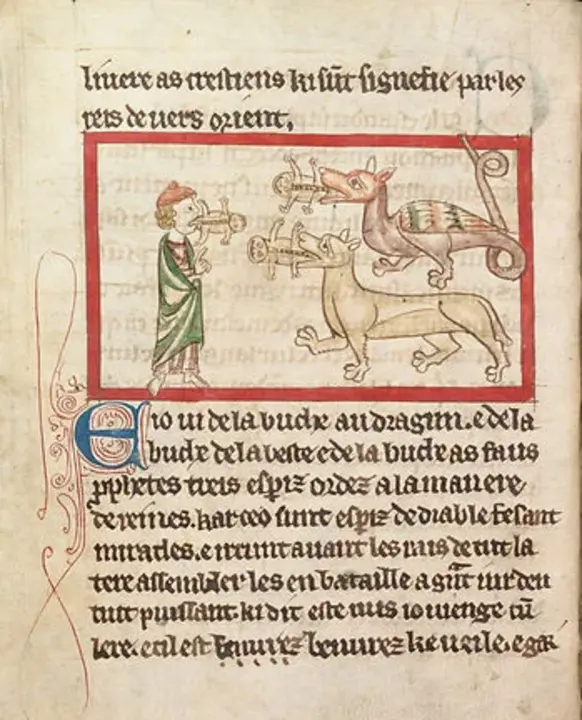 livere as crestiens ki sũt signefie par les
reis de vers orient.
E io vi de la buche au dragun. e de la
buche de la beste e de la buche as faus
prophetes treis espiz ordez a la manere
de reines. kar ceo sunt espiz de diable fesant
miracles. e irrunt avant les reis de tut la
tere assembler les en bataille a gr̃t iur deu
tut puissant. ki dit este vus io vienge cũ
lere. e cil est benurez ke veile. e gar